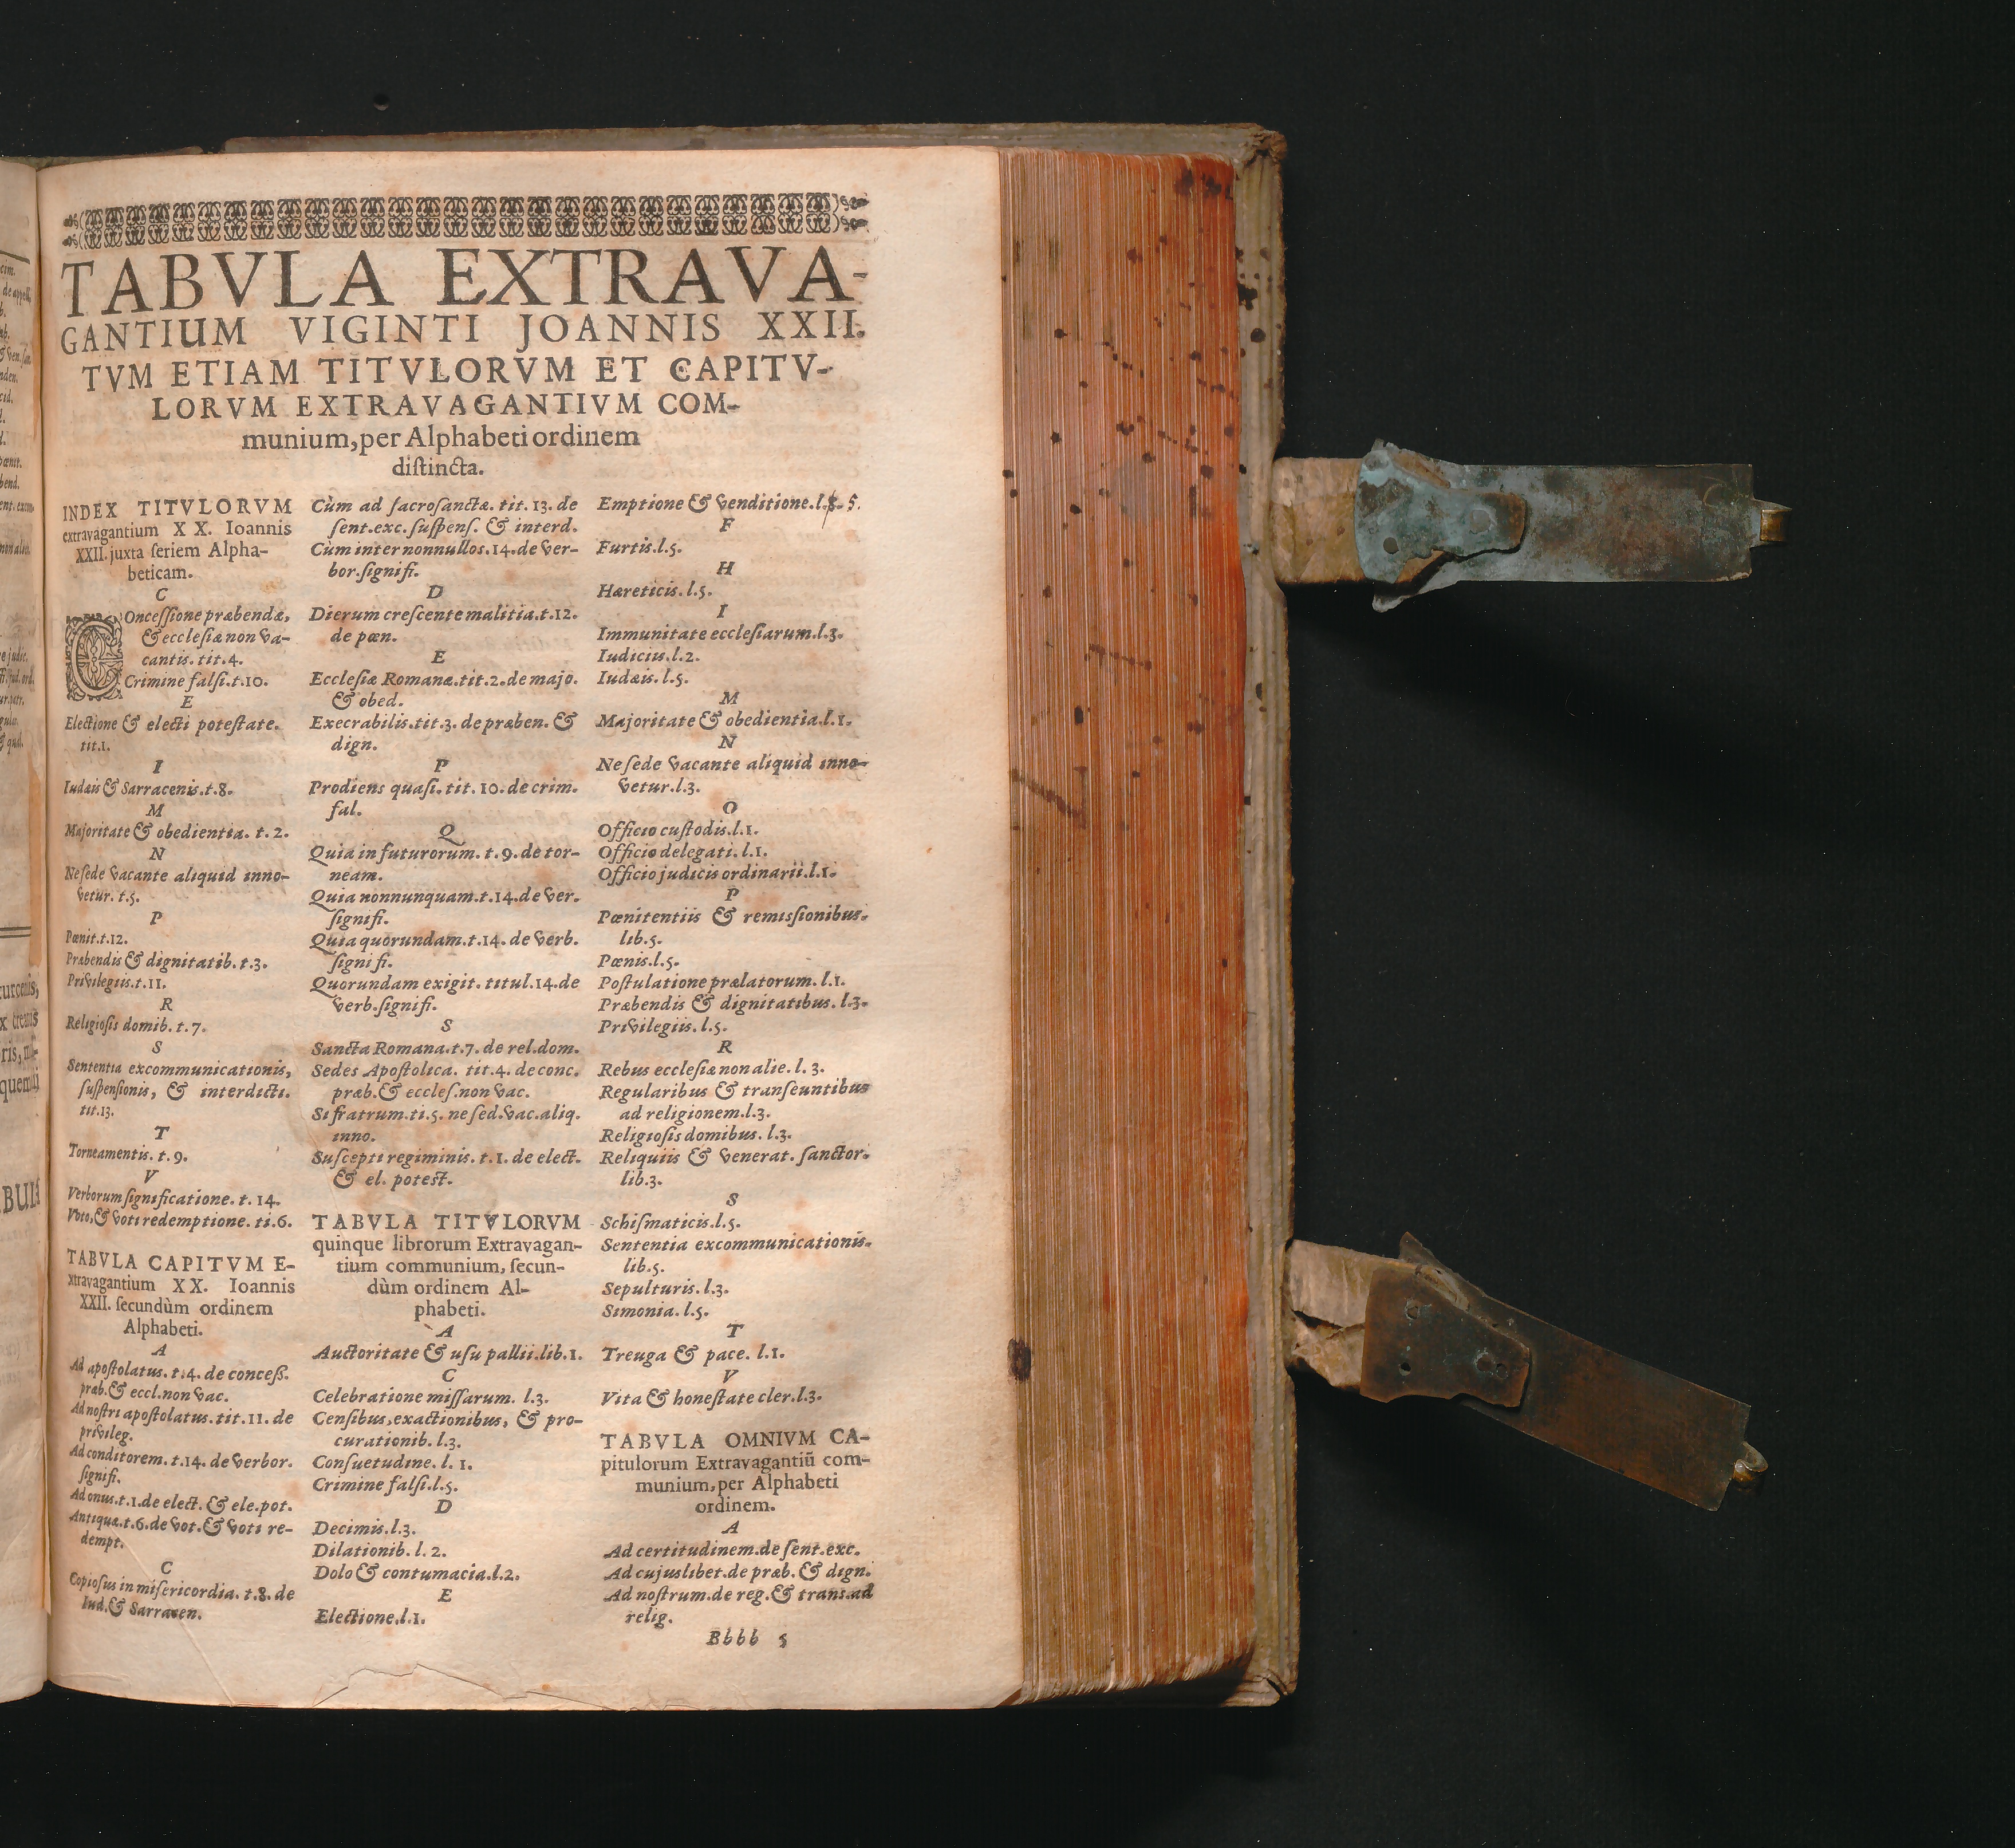 TABVLA EXTRAVA-
GANTIUM VIGINTI JOANNIS XXII.
TVM ETIAM TITVLORVM ET CAPITV-
LORVM EXTRAVAGANTIVM COM-
munium, per Alphabeti ordinem
diſtincta.
INDEX TITVLORVM
extravagantium XX. Ioannis
XXII. juxta ſeriem Alpha-
beticam.
C
COnceſſione præbendæ,
& eccleſiæ non va-
cantis. tit. 4.
Crimine falſi. t. 10.
E
Electione & electi poteſtate.
tit. 1.
I
Iudæis & Sarracenis. t. 8.
M
Majoritate & obedientia. t. 2.
N
Ne ſede vacante aliquid inno-
vetur. t. 5.
P
Pœnit. t. 12.
Præbendis & dignitatib. t. 3.
Privilegiis. t. 11.
R
Religioſis domib. t. 7.
S
Sententia excommunicationis,
ſuſpenſionis, & interdicti.
tit. 13.
T
Torneamentis. t. 9.
V
Verborum ſignificatione. t. 14.
Voto, & voti redemptione. ti. 6.
TABVLA CAPITVM E-
xtravagantium XX. Ioannis
XXII. ſecundùm ordinem
Alphabeti.
A
Ad apoſtolatus. t. 4. de conceſſ.
præb. & eccl. non vac.
Ad noſtri apoſtolatus. tit. 11. de
privileg.
Ad conditorem. t. 14. de verbor.
ſignifi.
Ad onus. t. 1. de elect. & ele. pot.
Antiquæ. t. 6. de vot. & voti re-
dempt.
C
Copioſus in miſericordia. t. 8. de
Iud. & Sarracen.
Cùm ad ſacroſanctæ. tit. 13. de
ſent. exc. ſuſpenſ. & interd.
Cùm inter nonnullos. 14. de ver-
bor. ſignifi.
D
Dierum creſcente malitia. t. 12.
de pœn.
E
Eccleſiæ Romanæ. tit. 2. de majo.
& obed.
Execrabilis. tit. 3. de præben. &
dign.
P
Prodiens quaſi. tit. 10. de crim.
fal.
Q
Quia in futurorum. t. 9. de tor-
neam.
Quia nonnunquam. t. 14. de ver.
ſignifi.
Quia quorundam. t. 14. de verb.
ſignifi.
Quorundam exigit. titul. 14. de
verb. ſignifi.
S
Sancta Romana. t. 7. de rel. dom.
Sedes Apoſtolica. tit. 4. de conc.
præb. & eccleſ. non vac.
Si fratrum. ti. 5. ne ſed. vac. aliq.
inno.
Suſcepti regiminis. t. 1. de elect.
& el. poteſt.
TABVLA TITVLORVM
quinque librorum Extravagan-
tium communium, ſecun-
dùm ordinem Al-
phabeti.
A
Auctoritate & uſu pallii. lib. 1.
C
Celebratione miſſarum. l. 3.
Cenſibus, exactionibus, & pro-
curationib. l. 3.
Conſuetudine. l. 1.
Crimine falſi. l. 5.
D
Decimis. l. 3.
Dilationib. l. 2.
Dolo & contumacia. l. 2.
E
Electione. l. 1.
Emptione & venditione. l. 5.
F
Furtis. l. 5.
H
Hæreticis. l. 5.
I
Immunitate eccleſiarum. l. 3.
Iudicius. l. 2.
Iudæis. l. 5.
M
Majoritate & obedientia. l. 1.
N
Ne ſede vacante aliquid inno-
vetur. l. 3.
O
Officio cuſtodis. l. 1.
Officio delegati. l. 1.
Officio judicis ordinarii. l. 1.
P
Pœnitentiis & remiſſionibus.
lib. 5.
Pœnis. l. 5.
Poſtulatione prælatorum. l. 1.
Præbendis & dignitatibus. l. 3.
Privilegiis. l. 5.
R
Rebus eccleſiæ non alie. l. 3.
Regularibus & tranſeuntibus
ad religionem. l. 3.
Religioſis domibus. l. 3.
Reliquiis & venerat. ſanctor.
lib. 3.
S
Schiſmaticis. l. 5.
Sententia excommunicationis.
lib. 5.
Sepulturis. l. 3.
Simonia. l. 5.
T
Treuga & pace. l. 1.
V
Vita & honeſtate cler. l. 3.
TABVLA OMNIVM CA-
pitulorum Extravagantiū com-
munium, per Alphabeti
ordinem.
A
Ad certitudinem. de ſent. exc.
Ad cujuslibet. de præb. & dign.
Ad noſtrum. de reg. & trans. ad
relig.
Bbbb 5